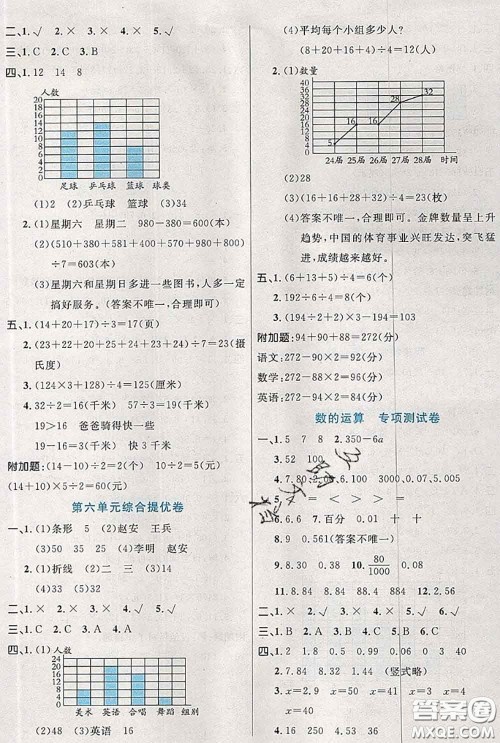 二、1.√ 2.× 3.× 4.× 5.√
三、1.C 2.A 3.C
四、1.12 14 8
人数
20
18
16
14
12
10
8
6
4
2
0
足球 乒乓球 篮球 球类
(1)2 (2)乒乓球 篮球 (3)34
2.(1)星期六 星期二 980-380=600(本)
(2)(510+380+580+600+550+980+621)
÷7=603(本)
(3)星期六和星期日多进一些图书,人多一定
搞好服务。(答案不唯一,合理即可)
五、1.(14+20+17)÷3=17(页)
2.(23+22+20+25+24+23+24)÷7=23(摄
氏度)
3.(124×3+128)÷(3+1)=125(厘米)
4.32÷2+2=18(千米) 57÷3=19(千米)
19>16 爸爸骑得快一些
19-16=3(千米) 快3千米
附加题:(14-10)÷2=2(千米)
(14+10)÷2=12(千米)
第六单元综合提优卷
一、1.(1)条形 5 (2)赵安 王兵
(3)50 35 25 (4)李明 赵安
2.(1)折线 (2)二 三 (3)二 一
(4)33 (5)32
二、1.× 2.× 3.√ 4.× 5.√
三、1.B 2.C 3.D 4.A
四、1.(1)人数
24
22
20
18
16
14
12
10
8
6
4
2
0
美术 英语 合唱 舞蹈 组别
(2)48 (3)英语 16
(4)平均每个小组多少人?
(8+20+16+4)÷4=12(人)
2.(1)数量
40
35
30
25
20
15
10
5
0
5 16 16 28 32
24届 25届 26届 27届 28届 时间
(2)28
(3)(5+16+16+28+32)
(4)(答案不唯一,合理即可。金牌数量呈上升
趋势,中国的体育事业兴旺发达,突飞猛
进,成绩越来越好。
五、1.(6+13+5)÷4=6(个)
2.192÷(2+6)=24(个)
3.(194÷2+2)×3-194=103(个)
附加题:94+90+88=272(分)
语文:272-90×2=92(分)
数学:272-94×2=84(分)
英语:272-88×2=96(分)
数的运算 专项测试卷
一、1.5 7 8 2.350-6a
3.52 100
5.= = < > = <
6.6.6 7.百分 0.01 十 十
8.9 0.561(答案不唯一)
9.0.4 0.39 10.80/1000 0.08
二、1.× 2.√ 3.× 4.√ 5.×
三、1.C 2.B 3.A 4.A 5.C
2.7.84 8.32 44 (竖式略)
五、1.16 250 0.53 36
答案圈
MXQE.COM